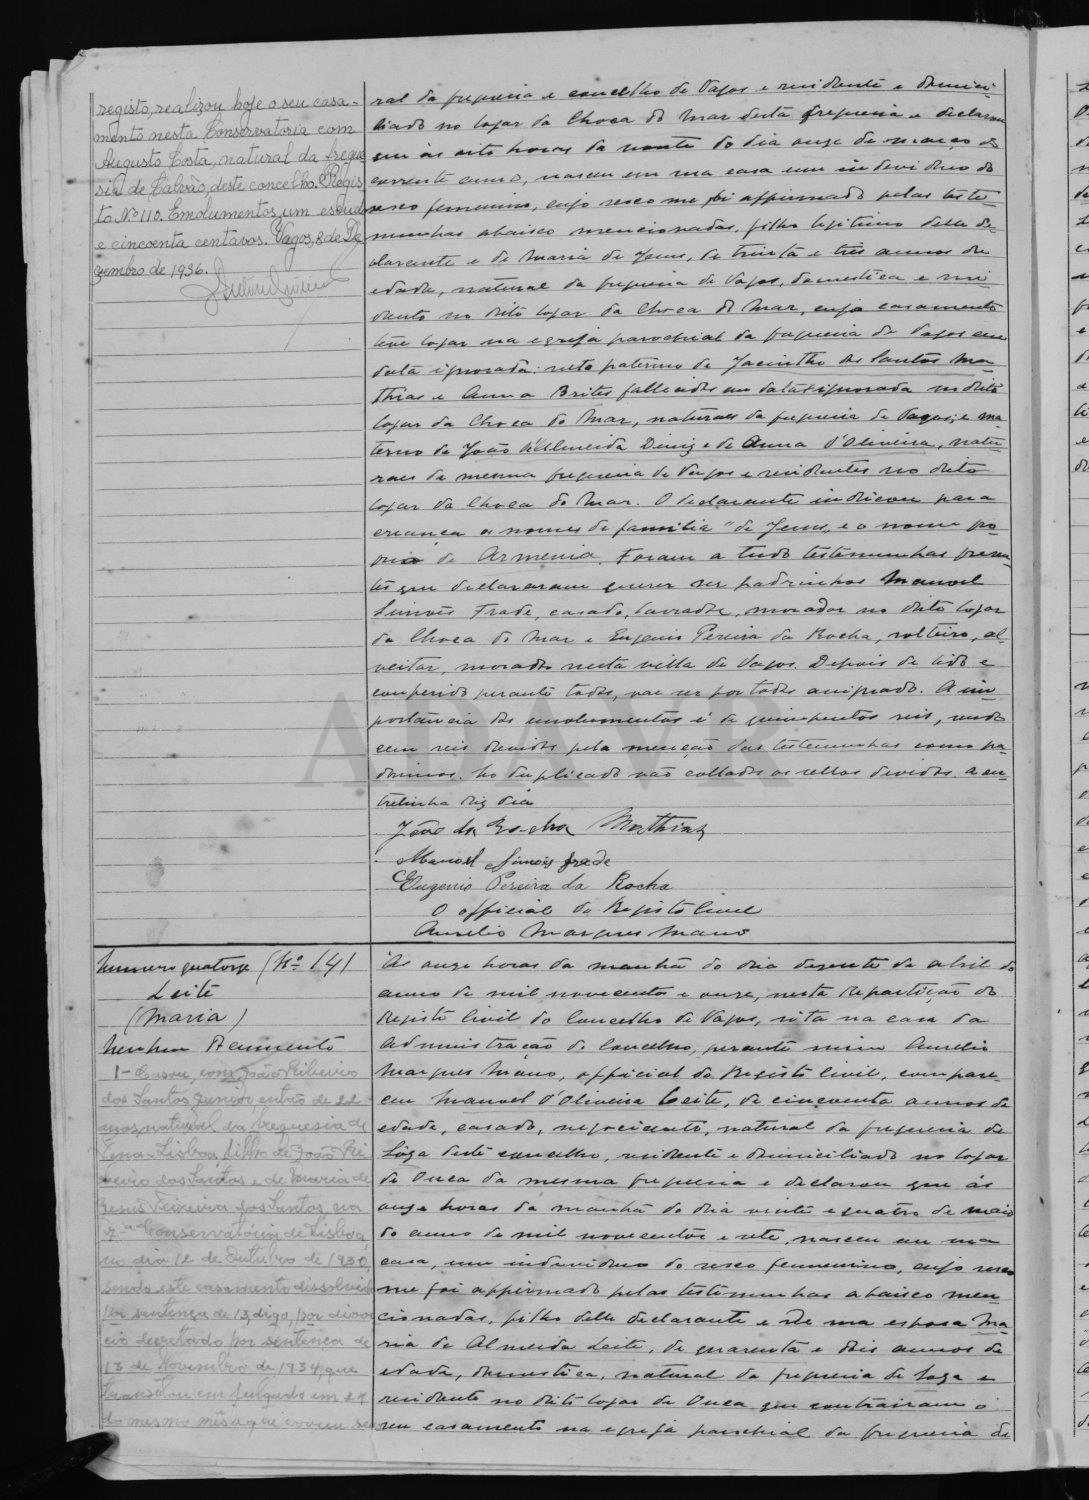 registo, realizou hoje o seu casa-
mento nesta Conservatoria com
Augusto Costa, natural da fregue-
sia de Calvão, deste concelho. Regis-
to Nº 110. Emolumentos, um escudo
e cincoenta centavos. Vagos, 8 de De-
zembro de 1936.
ral da freguesia e concelho de Vagos e residente e domici-
liado no logar da Choca do Mar desta freguesia e declarou
que ás oito horas da noute do dia onze de março do
corrente anno, nasceu em sua casa um individuo do
sexo femenino, cujo sexo me foi affirmado pelas teste-
munhas abaixo mencionadas, filho legitimo delle de-
clarante e de Maria de Jesus, de trinta e três annos de
edade, natural da freguesia de Vagos, domestica e resi-
dente no dito logar da Choca do Mar, cujo casamento
teve logar na egreja parochial da freguesia de Vagos em
data ignorada; neto paterno de Jacintho dos Santos Ma-
thias e Anna Brites fallecidos em data ignorada no dito
logar da Choca do Mar, naturaes da freguesia de Vagos; e ma-
terno de João d'Almeida Diniz e de Anna d'Oliveira, natu-
raes da mesma freguesia de Vagos e residentes no dito
logar da Choca do Mar. O declarante indicou para a
creança os nomes de familia "de Jesus" e o nome pro-
prio de Armenia. Foram a tudo testemunhas presen-
tes que declararam querer ser padrinhos Manoel
Simões Frade, casado, lavrador, morador no dito logar
da Choca do Mar e Eugenio Pereira da Rocha, solteiro, al-
veitar, morador nesta villa de Vagos. Depois de lido e
conferido perante todos, vae ser por todos assignado. A im-
portancia dos emolumentos é de quinhentos reis, sendo
cem reis devidos pela menção das testemunhas como pa-
drinhos. No duplicado vão collados os sellos devidos. A en-
trelinha diz dia
João da Rocha Mathias
Manoel Simões Frade
Eugenio Pereira da Rocha
O official do Registo Civil
Aurelio Marques Mano
ADAVR
Numero quatorze (Nº 14)
Leite
(Maria)
Nenhum Documento
1- Casou com João Ribeiro
dos Santos Junior então de 22
anos, natural da freguesia de
Pena-Lisboa, filho de João Ri-
beiro dos Santos e de Maria de
Jesus Teixeira dos Santos, na
7ª Conservatória de Lisboa,
no dia 12 de Outubro de 1930,
sendo este casamento dissolvido
por sentença de 13, digo, por divor-
cio decretado por sentença de
13 de Novembro de 1934, que
transitou em julgado em 27
do mesmo mês
Ás onze horas da manhã do dia dezoito de abril do
anno de mil novecentos e onze, nesta Repartição do
Registo Civil do Concelho de Vagos, sita na casa da
Administração do Concelho, perante mim Aurelio
Marques Mano, official do Registo Civil, compare-
ceu Manoel d'Oliveira Leite, de cincoenta annos de
edade, casado, negociante, natural da freguesia de
Sôza deste concelho, residente e domiciliado no logar
de Ouca da mesma freguesia e declarou que ás
onze horas da manhã do dia vinte e quatro de maio
do anno de mil novecentos e sete, nasceu em sua
casa, um individuo do sexo femmenino, cujo sexo
me foi affirmado pelas testemunhas abaixo men-
cionadas, filho delle declarante e de sua esposa Ma-
ria de Almeida Leite, de quarenta e dois annos de
edade, domestica, natural da freguesia de Soza e
residente no dito logar de Ouca que contrairam o
seu casamento na egreja parochial da freguesia de